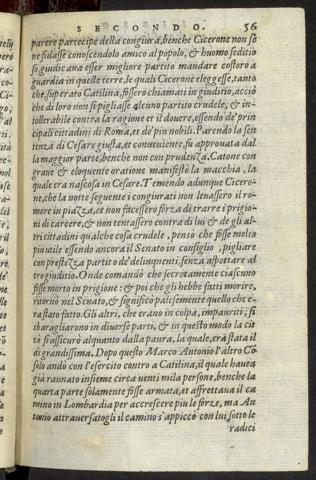 SECONDO. 56
parere partecipe della congiura, benche Cicerone non se
ne fidasse conoscendolo amico al popolo, & huomo seditio
so giudicaua esser migliore partito mandare costoro a
guardia in queste terre, le quali Cicerone eleggesse, tanto
che, superato Catilina, fossero chiamati in giuditio, acciò
che di loro non si pigliasse alcuno partito crudele, & in-
tollerabile contra la ragione et il douere, essendo de' prin
cipali cittadini di Roma, et de' piu nobili. Parendo la sen
tenza di Cesare giusta, et conueniente, fu approuata dal
la maggior parte, benche non con prudenza. Catone con
graue & eloquente oratione manifestò la macchia, la
quale era nascosa in Cesare. Temendo adunque Cicero-
ne, che la notte seguente i congiurati non leuassero il ro-
more in piazza, et non facessero forza di trarre i prigio-
ni di carcere, & non tentassero contra di lui & de gli al-
tri cittadini qualche cosa crudele, pensò che fosse molto
piu utile essendo ancora il Senato in consiglio, pigliare
con prestezza partito de' delinquenti senza aspettare al
tro giuditio. Onde comandò che secretamente ciascuno
fosse morto in prigione: & poi che gli hebbe fatti morire,
ritornò nel Senato, & significò palesemente quello che e-
ra stato fatto. Gli altri, che erano in colpa, impauriti, si
sbaragliarono in diuerse parti, & in questo modo la cit
tà si assicurò alquanto dalla paura, la quale, era stata il
dì grandissima. Dopo questo Marco Antonio l'altro Co
solo andò con l'esercito contro a Catilina, il quale hauea
già raunato insieme circa uenti mila persone, benche la
quarta parte solamente fosse armata, et affrettaua il ca
mino in Lombardia per accrescere piu le forze, ma An
tonio attrauersatogli il camino s'appiccò con lui, sotto le
radici